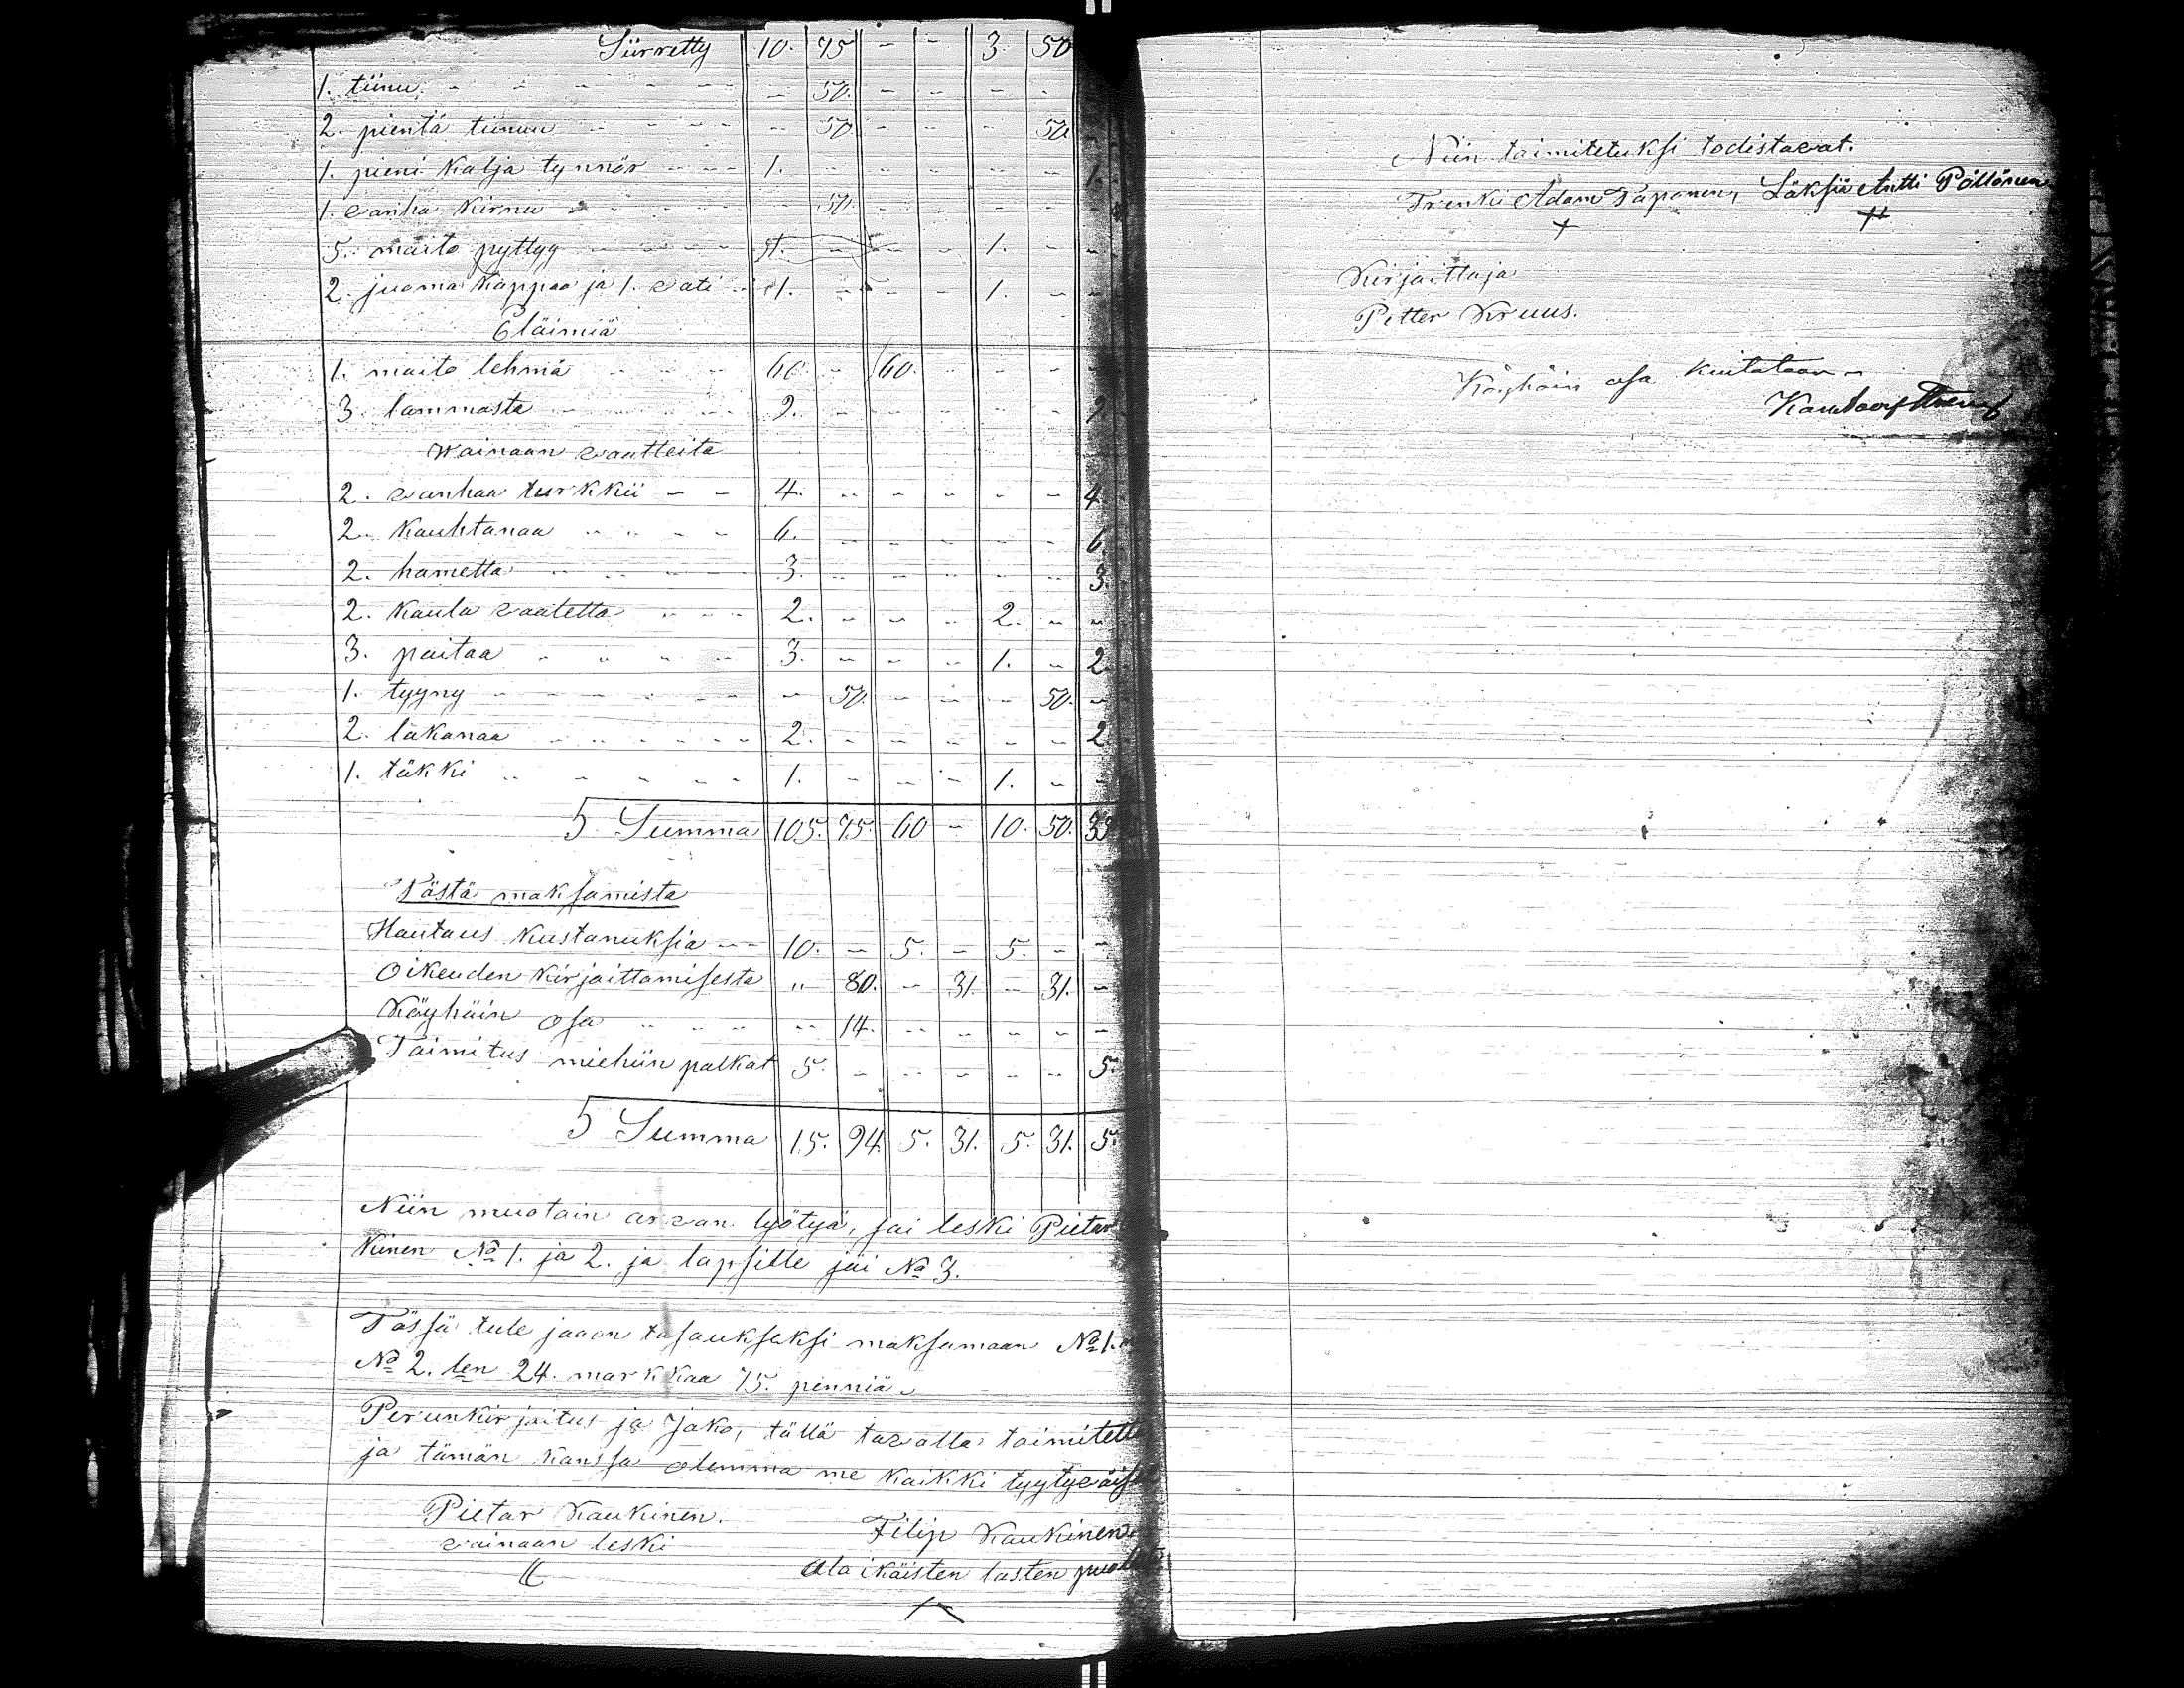 Siirretty 10. 75 - - 3. 50
1. tiinu - - 50. - - - -
2. pientä tiinuu - - 50 - - - 50
1. pieni kalja tynnör - - 1. - - - - - 1.
1. vanha kirnu - - 50 - - - - -
5. maito pyttyy - - 1. - - - 1. - -
2. juoma kappaa ja 1. vati - 1. - - - 1. - -
Eläimiä
1. maito lehmä - - 60. - 60. - - - -
3. lammasta - - 9. - - - - - 9
Wainaan vaatteita
2. vanhaa turkkii - - 4. - - - - - 4.
2. kauhtanaa - - 6. - - - - - 6.
2. hametta - - 3. - - - - - 3.
2. kaula vaatetta - - 2. - - - 2. - -
3. paitaa - - 3. - - - 1. - 2.
1. tyyny - - - 50. - - - 50. -
2. lakanaa - - 2. - - - - - 2
1. täkki - - 1. - - - 1. - -
Summa 105. 75. 60 - 10. 50.
Tästä maksamista
Hautaus kustanuksia - - 10. - 5. - 5. - -
Oikeuden kirjoittamisesta " 80. - 31. - 31. -
Käyhäin osa - - 14. - - - - -
Toimitus miehiin palkat 5. - - - - - 5.
Summa 15. 94. 5. 31. 5. 31. 5.
Niin muotoin arvan lyötyä, jai leski Pietar
Kinen No 1. ja 2. ja lapsille jäi No 3.
Tässä tule jaaon tasauksuksi maksamaan No 1.
No 2. len 24. markkaa 75. penniä
Perunkirjoitus ja Jako, tällä tavalla toimitettu
ja tämän kanssa olemma me kaikki tyytyväiset
Pietar Kaukinen. Filip Kaukinen
vainaan leski Ala ikäisten lasten puolesta
Niin toimitetuksi todistavat.
Trenki Adam Paponen, Läksiä Antti Pöllönen
Kirjoittaja
Petter Kruus.
Käyhäin osa kuitataan